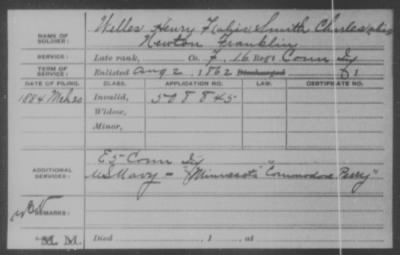 NAME OF SOLDIER: Welles Henry Smith Charles alias
Newton Franklin
SERVICE: Late rank, Co. F, 16 Reg't Conn Inf
TERM OF SERVICE: Enlisted Aug 2, 1862 Discharged , 1
DATE OF FILING. CLASS. APPLICATION NO. LAW. CERTIFICATE NO.
1884 Mch 20 Invalid, 508845
Widow,
Minor,
ADDITIONAL SERVICES: E 5 Conn Inf
US Navy - "Minnesota" "Commodore Perry"
REMARKS:
M. M. Died , 1 , at